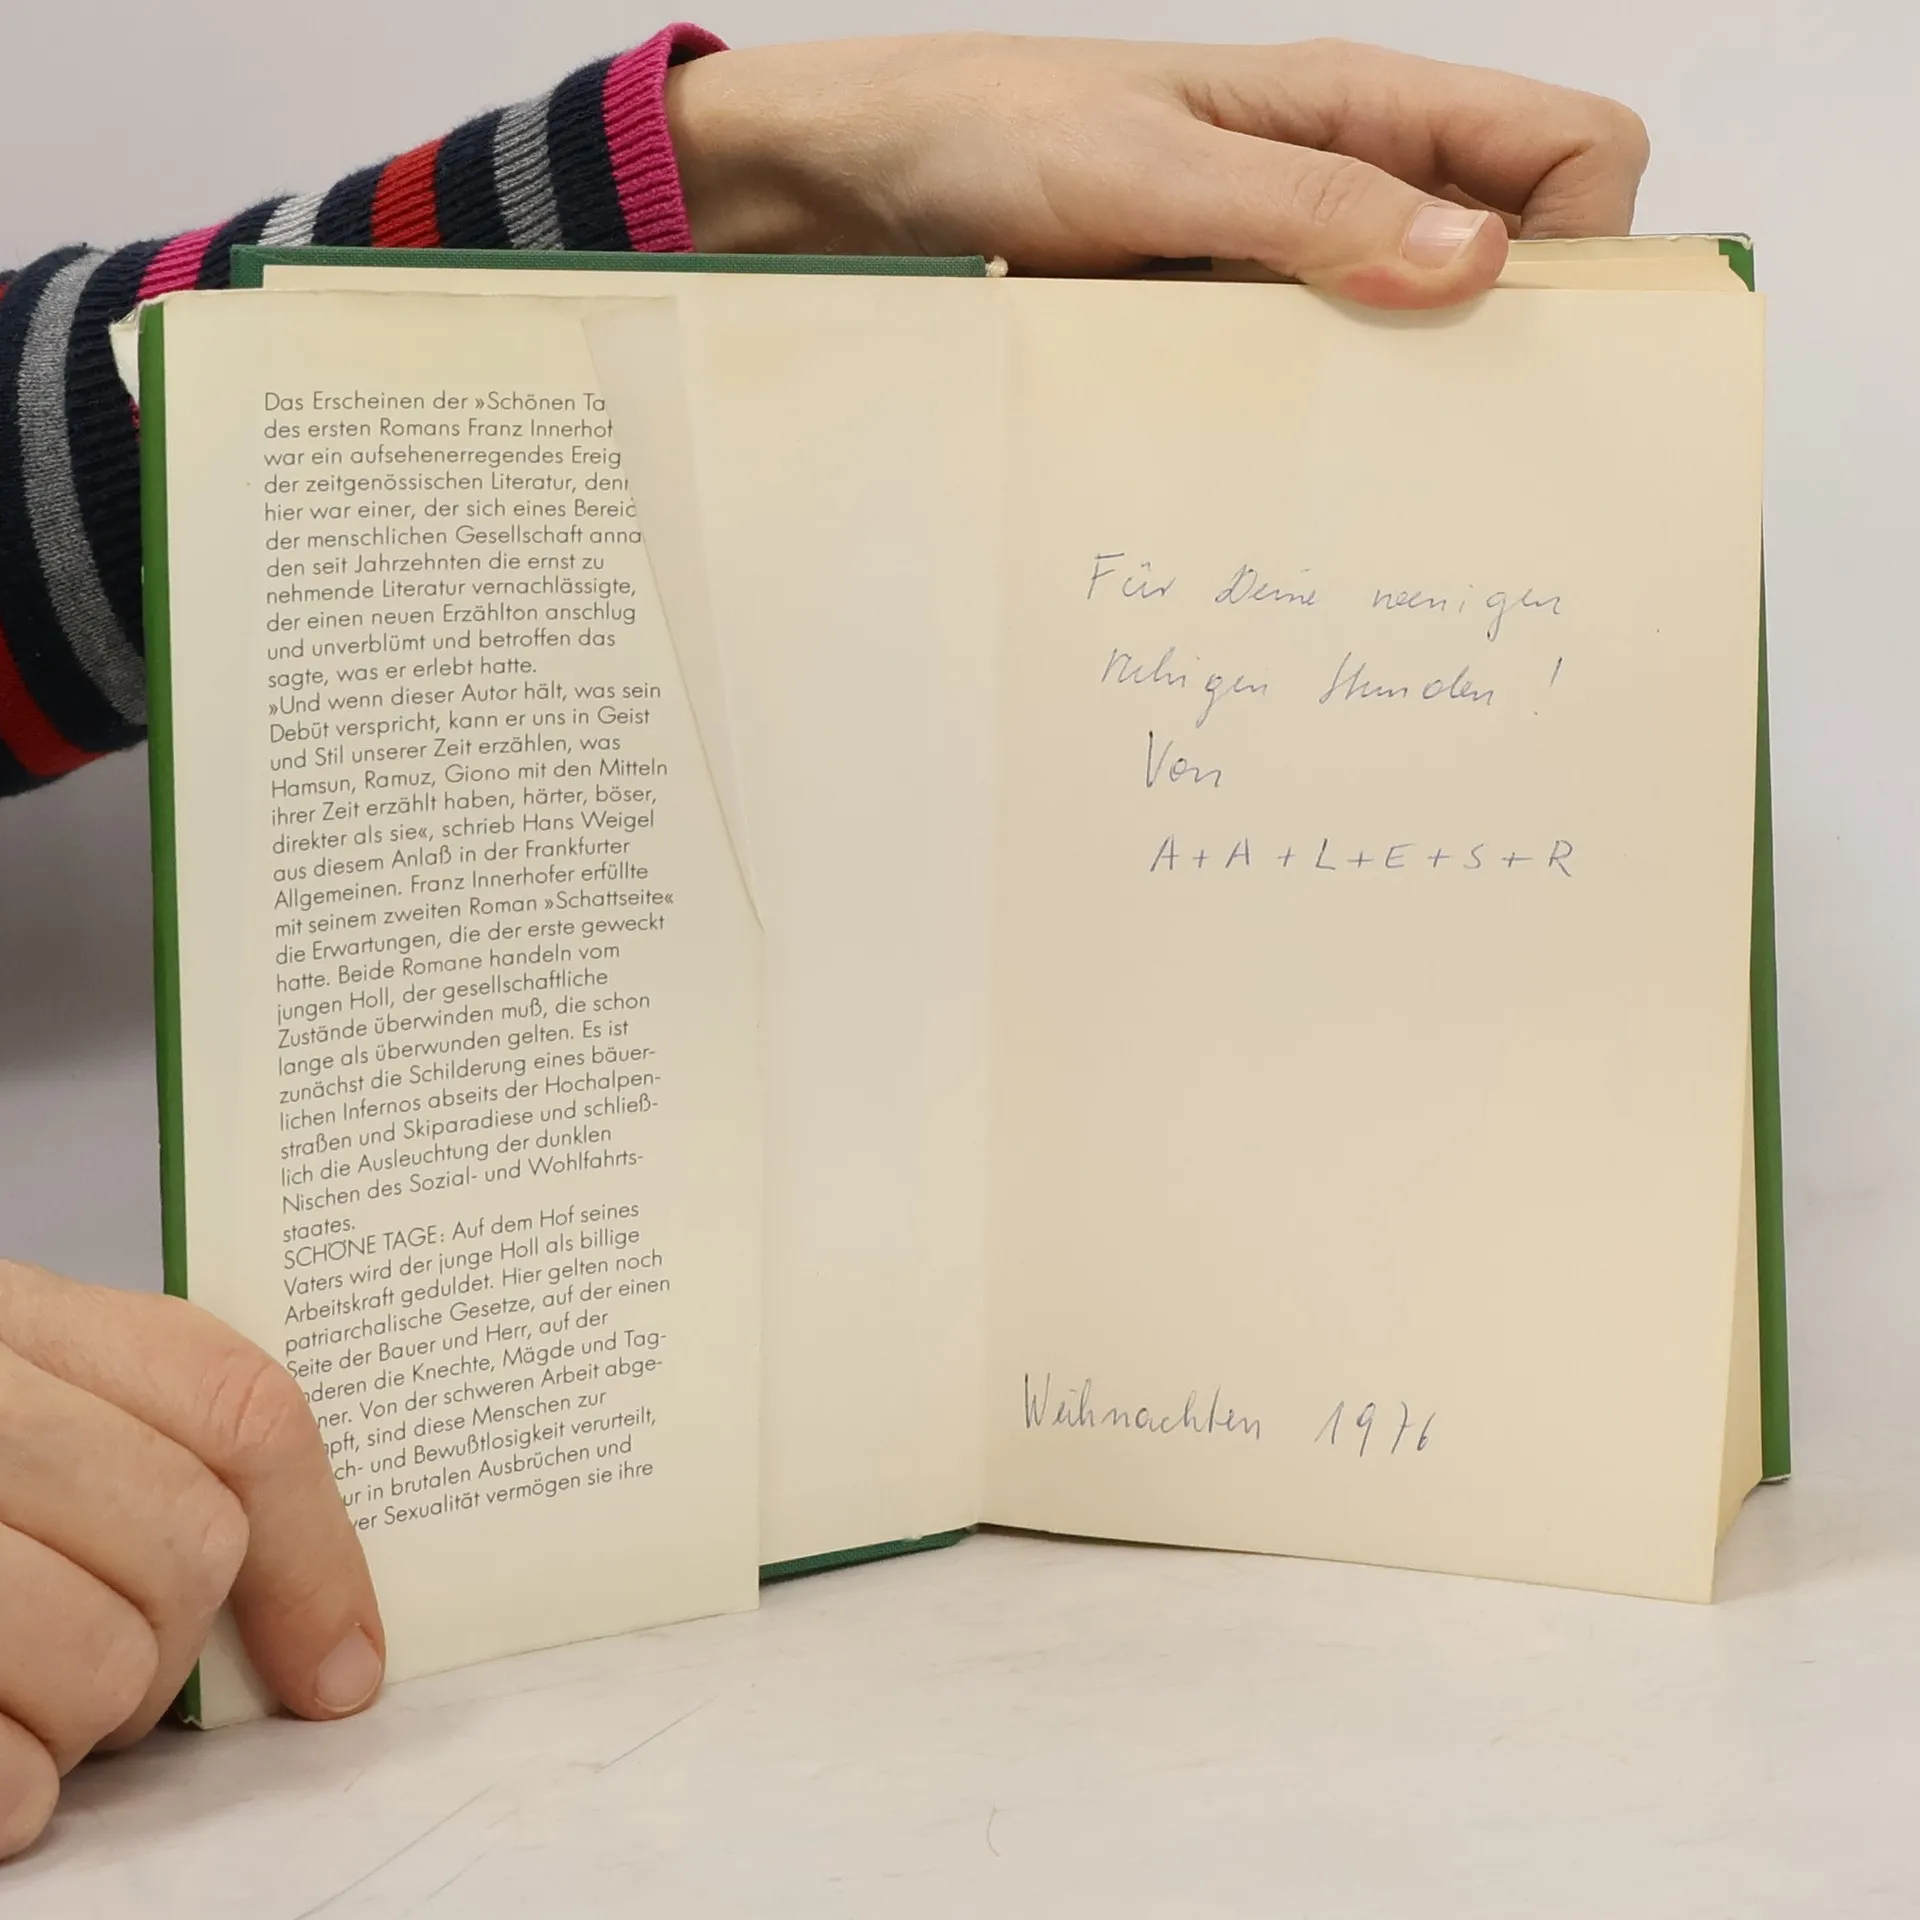 Das Erscheinen der »Schönen Ta
des ersten Romans Franz Innerhof
war ein aufsehenerregendes Ereig
der zeitgenössischen Literatur, denn
hier war einer, der sich eines Bereic
der menschlichen Gesellschaft anna
den seit Jahrzehnten die ernst zu
nehmende Literatur vernachlässigte,
der einen neuen Erzählton anschlug
und unverblümt und betroffen das
sagte, was er erlebt hatte.
»Und wenn dieser Autor hält, was sein
Debüt verspricht, kann er uns in Geist
und Stil unserer Zeit erzählen, was
Hamsun, Ramuz, Giono mit den Mitteln
ihrer Zeit erzählt haben, härter, böser,
direkter als sie«, schrieb Hans Weigel
aus diesem Anlaß in der Frankfurter
Allgemeinen. Franz Innerhofer erfüllte
mit seinem zweiten Roman »Schattseite«
die Erwartungen, die der erste geweckt
hatte. Beide Romane handeln vom
jungen Holl, der gesellschaftliche
Zustände überwinden muß, die schon
lange als überwunden gelten. Es ist
zunächst die Schilderung eines bäuer-
lichen Infernos abseits der Hochalpen-
straßen und Skiparadiese und schließ-
lich die Ausleuchtung der dunklen
Nischen des Sozial- und Wohlfahrts-
staates.
SCHÖNE TAGE: Auf dem Hof seines
Vaters wird der junge Holl als billige
Arbeitskraft geduldet. Hier gelten noch
patriarchalische Gesetze, auf der einen
Seite der Bauer und Herr, auf der
nderen die Knechte, Mägde und Tag-
ner. Von der schweren Arbeit abge-
pft, sind diese Menschen zur
ch- und Bewußtlosigkeit verurteilt,
ur in brutalen Ausbrüchen und
ver Sexualität vermögen sie ihre
Für Deine wenigen
ruhigen Stunden!
Von
A + A + L + E + S + R
Weihnachten 1976